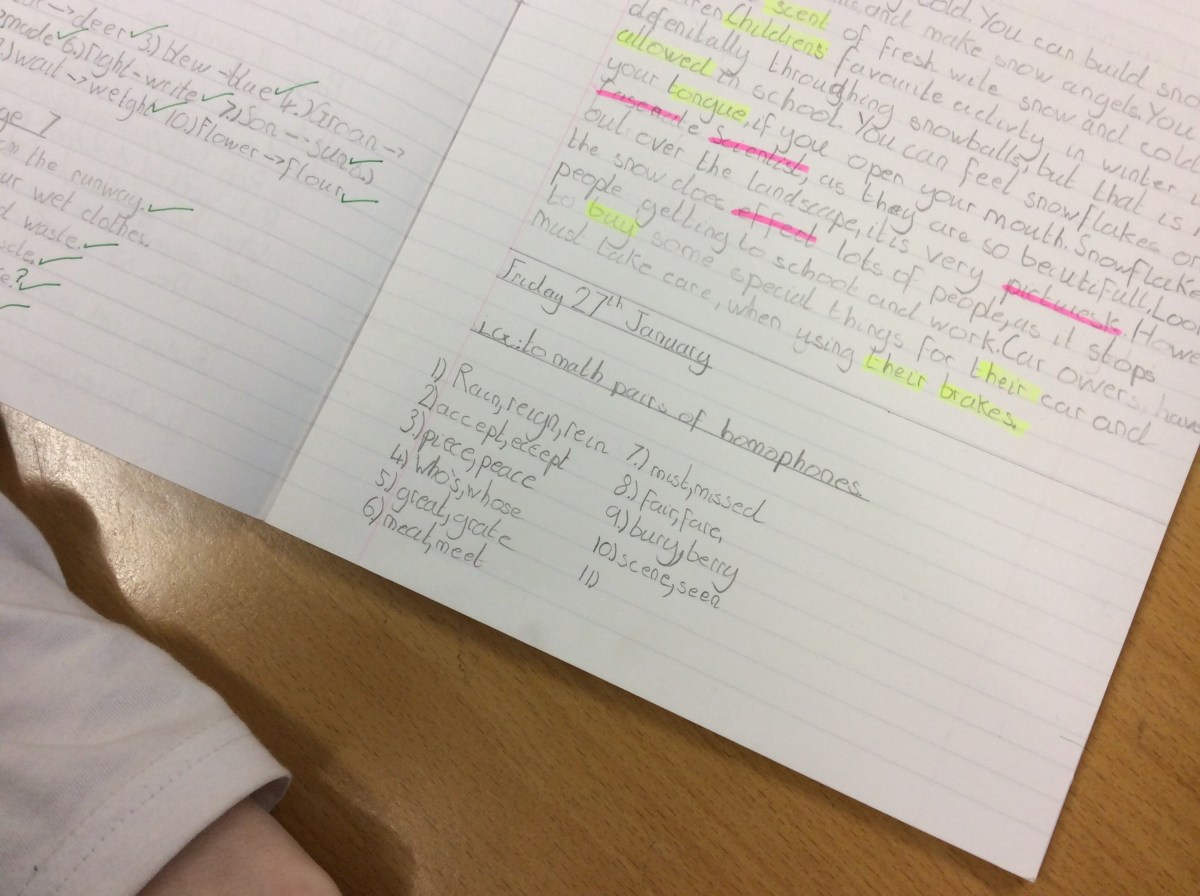 deer 3.) blew -blue 4.) Groan →
made 6.) right-write 7.) Son -- sun 8.)
wait → weight 10.) Flower → flour
7
the runway.
wet clothes.
waste.
cold. You can build snow
and make snow angels. You
scent of fresh wite snow and cold
Childrens favourite activity, in winter
defenitally throughing snowballs, but that is
allowed in school. You can feel snowflakes on
your tongue, if you open your mouth. Snowflake
scientist, as they are so beutifull. Loo
out over the landscape, it is very picturesk. Howe
the snow does effect lots of people, as it stops
people getting to school and work. Car owers, have
to buy some special things for their car and
must take care, when using their brakes.
Friday 27th January
L.O: to math pairs of homophones
1) Rain, reign, rein
2) accept, except
3.) piece, peace
4) who's, whose
5) great, grate
6) meat, meet
7.) mist, missed
8.) fair, fare,
9.) bury, berry
10) scene, seen
11)